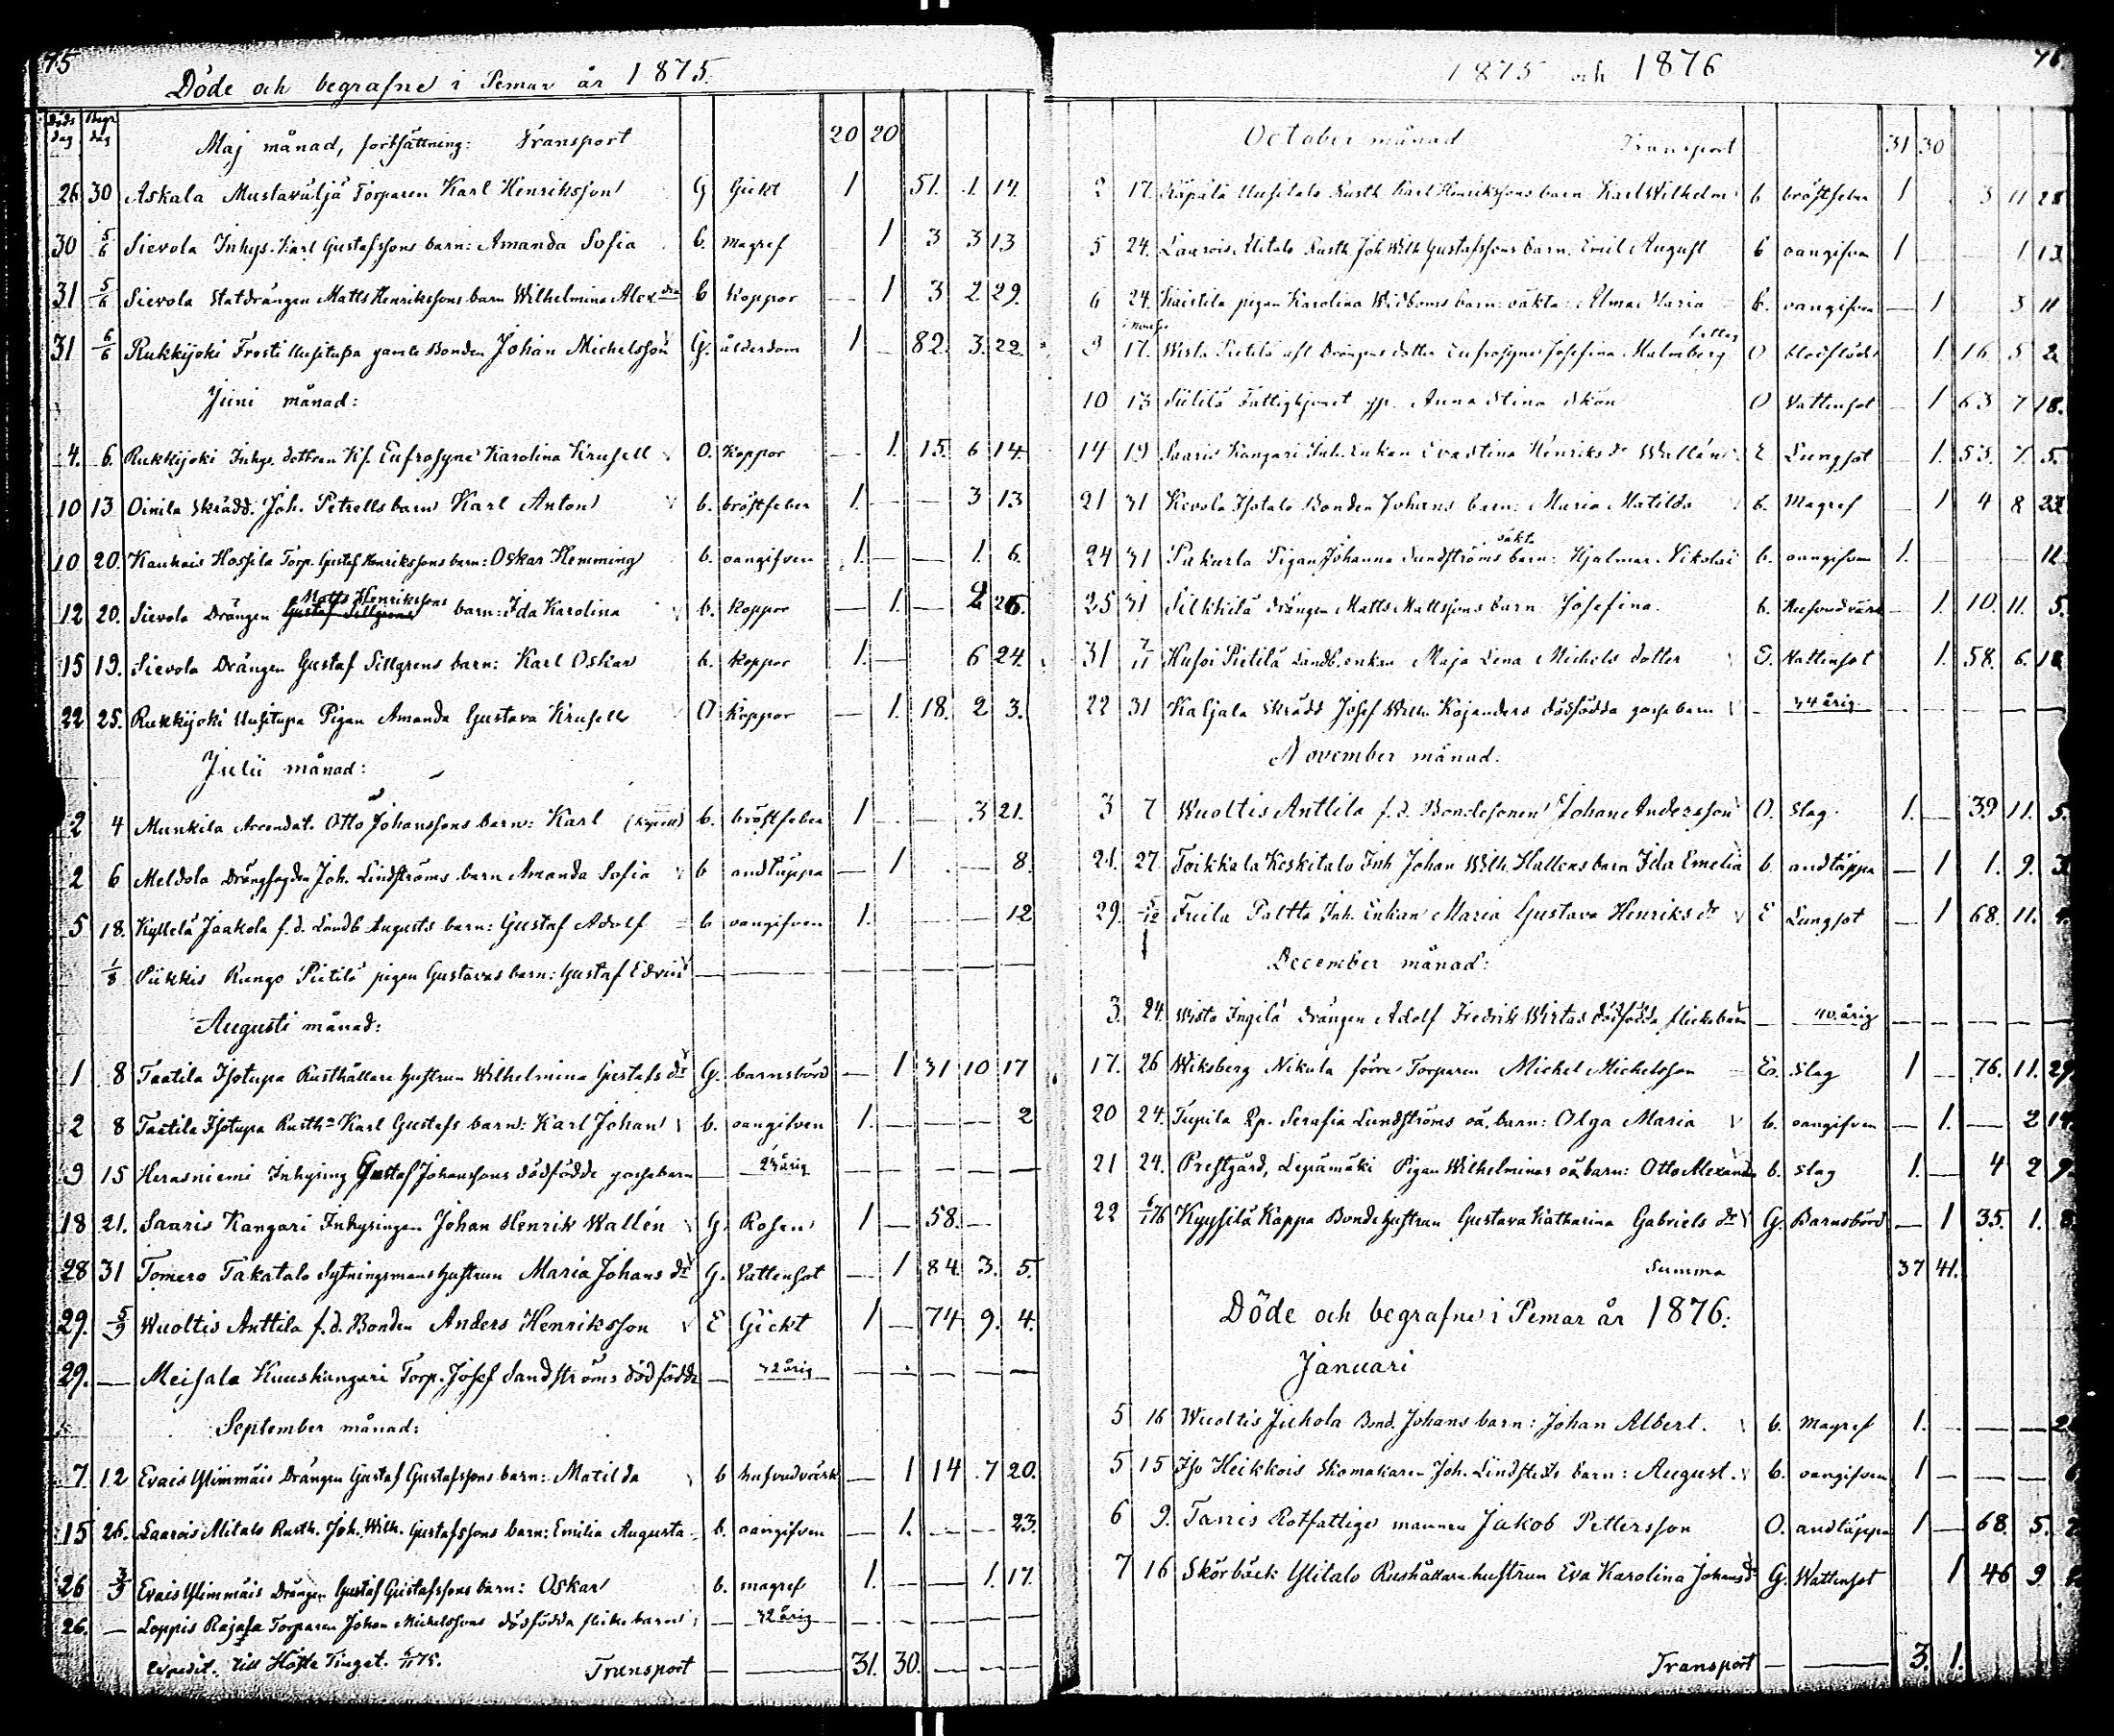 75
Döde och begrafne i Pemar år 1875.
Döds dag Begr dag Maj månad, fortsättning: Transport 20 20
26 30 Askala Mustaväljä Torparen Karl Henriksson G Gickt 1 51. 1. 14.
30 5/6 Sievola Inhys. Karl Gustafssons barn: Amanda Sofia b. magref 1 3 3 13
31 5/6 Sievola Statdrängen Matts Henrikssons barn Wilhelmina Alexdra b koppor — 1 3 2 29.
31 6/6 Rukkijoki Frosti Uusitupa gamle Bonden Johan Michelsson G. ålderdom 1 — 82. 3. 22.
Juni månad:
4. 6. Rukkijoki Inhys. dottren Eufrosyne Karolina Krusell O. Koppor — 1. 15. 6 14.
10 13 Oinila Skrädd. Joh. Petrells barn Karl Anton b. bröstfeber 1. — — 3 13.
10 20. Kaukais Hossila Torp. Gustaf Henrikssons barn: Oskar Hemming b. oangifven 1. — — 1. 6.
12 20. Sievola Drängen Matts Henrikssons barn: Ida Karolina b. koppor — 1. — 2 26.
15 19. Sievola Drängen Gustaf Sillgrens barn: Karl Oskar b. koppor 1. — 6 24.
22 25. Rukkijoki Uusitupa Pigan Amanda Gustava Krusell O koppor — 1. 18. 2 3.
Julii månad:
2 4 Munkila Arrendat. Otto Johanssons barn: Karl b. bröstfeber 1 — — 3 21.
2 6 Meldola Drängfogden Joh. Lindströms barn Amanda Sofia b andtäppa — 1 — — 8.
5 18. Kyllelä Jaakola f.d. Landb Augusts barn: Gustaf Adolf b oangifven 1. — — — 12
1/8 Piikkis Rungo Pietilä pigan Gustavas barn: Gustaf Edvin — — — — — — —
Augusti månad:
1 8 Taatila Isotupa Rusthållare hustrun Wilhelmina Gustafs dr G. barnsbörd — 1 31 10 17
2 8 Taatila Isotupa Rusth Karl Gustafs barn: Karl Johan b. oangifven 1. — — — 2
9 15 Herasniemi Inhysing Gustaf Johanssons dödfödde gossebarn — årig — — — — —
18 21. Saaris Kangari Inhysingen Johan Henrik Wallén G. Rosen 1 — 58. —
28 31 Tomero Takatalo Sytningsmans hustrun Maria Johans dr G. Vattensot — 1 84. 3. 5.
29. 5/9 Wuoltis Anttila f.d. Bonden Anders Henriksson E Gickt 1 — 74 9. 4.
29. — Meisala Kuuskangari Torp. Josef Sandströms dödfödde — 32 årig — — — — —
September månad:
7 12 Evais Ylimmäis Drängen Gustaf Gustafssons barn: Matilda b hufvudvärk — 1 14 7 20.
15 26. Laarois Alitalo Rusth. Joh. Wilh. Gustafssons barn: Emilia Augusta b. oangifven — 1. — — 23.
26 3/9 Evais Ylimmäis Drängen Gustaf Gustafssons barn: Oskar b. magref 1. — — 1. 17.
26. — Loppis Rajala Torparen Johan Michelssons dödfödda flicke barn — 32 årig — — — — —
Expedit. till Höste Tinget. 6/11 75. Transport — — 31. 30. — — —
1875 och 1876 76.
October månad Transport 31 30
2 17. Räpälä Uusitalo Rusth Karl Henrikssons barn Karl Wilhelm b bröstfeber 1 3 11 28
5 24. Laarois Alitalo Rusth. Joh Wilh Gustafssons barn. Emil August b oangifven 1 — 1 13
6 24. Kaistila pigan Karolina Widboms barn: oäkta: Alma Maria b. oangifven — 1 3 11
3 17. Wista Pietilä afl. Drängens dotter Eufrosyne Josefina Malmberg O blodflöde 1 16 5 2.
10 13 Fattighjonet Anna Stina Skön O Vattensot — 1 63 7 18.
14 19 Saaris Kangari Inh. Enkan Eva Stina Henriks dr Wallén E Lungsot — 1. 53. 7. 5.
21 31 Kevola Isotalo Bonden Johans barn: Maria Matilda b. Magref 1 4 8 23
24 31 Pukurla Pigan Johanna Sundströms oäkt. barn: Hjalmar Nikolai b. oangifven 1. — — — 11.
25 31 Silkkilä drängen Matts Mattssons barn Josefina. b. Hufvudvärk — 1. 10. 11. 5.
31 7/11 Husoi Pietilä Landb. enkan Maja Lena Michels dotter E. Vattensot 1. 58. 6. 18
22 31 Kaljala Skrädd Josef Wilh. Kojanders dödfödda gossebarn — 34 årig — — — —
November månad.
3 7 Wuoltis Anttila f.d. Bondesonen Johan Andersson O. Slag 1. — 39 11. 5.
21. 27 Toikkala Keskitalo Inh Johan Wilh. Hallens barn Ida Emelia b. andtäppa — 1 1. 9. 3
29. 5/12 Fuila Paltta Inh. Enkan Maria Gustava Henriks dr E Lungsot — 1 68. 11.
December månad:
3. 24. Wista Ingilä drängen Adolf Fredrik Wirtas dödfödda flickebarn — 40. årig — — — —
17. 26 Wiksberg Nikula förre Torparen Michel Michelsson E. Slag 1 — 76. 11. 29
20 24. Tupila Qp. Serafia Lundströms oä. barn: Olga Maria b. oangifven — 1. — 2 14.
21 24. Prestgård, Lepämäki Pigan Wilhelminas oä barn: Otto Alexander b. slag 1. — 4 2 9.
22 6/1 76 Kyysilä Kappa Bondehustrun Gustava Katharina Gabriels dr G. Barnsbörd — 1 35. 1. 8
Summa 37 41.
Döde och begrafne i Pemar år 1876:
Januari
5 16 Wuoltis Juhola Bond. Johans barn: Johan Albert. b. magref 1. — — — 2
5 15 Iso Heikkois Skomakaren Joh. Lindstedts barn: August. b. oangifven 1 — — —
6 9. Tarris Rotfattige mannen Jakob Pettersson O. andtäppa 1 — 68. 5.
7 16 Skörbäck Ylitalo Rushållare hustrun Eva Karolina Johans dr G. Wattensot 1 46 9
Transport — — 3. 1.